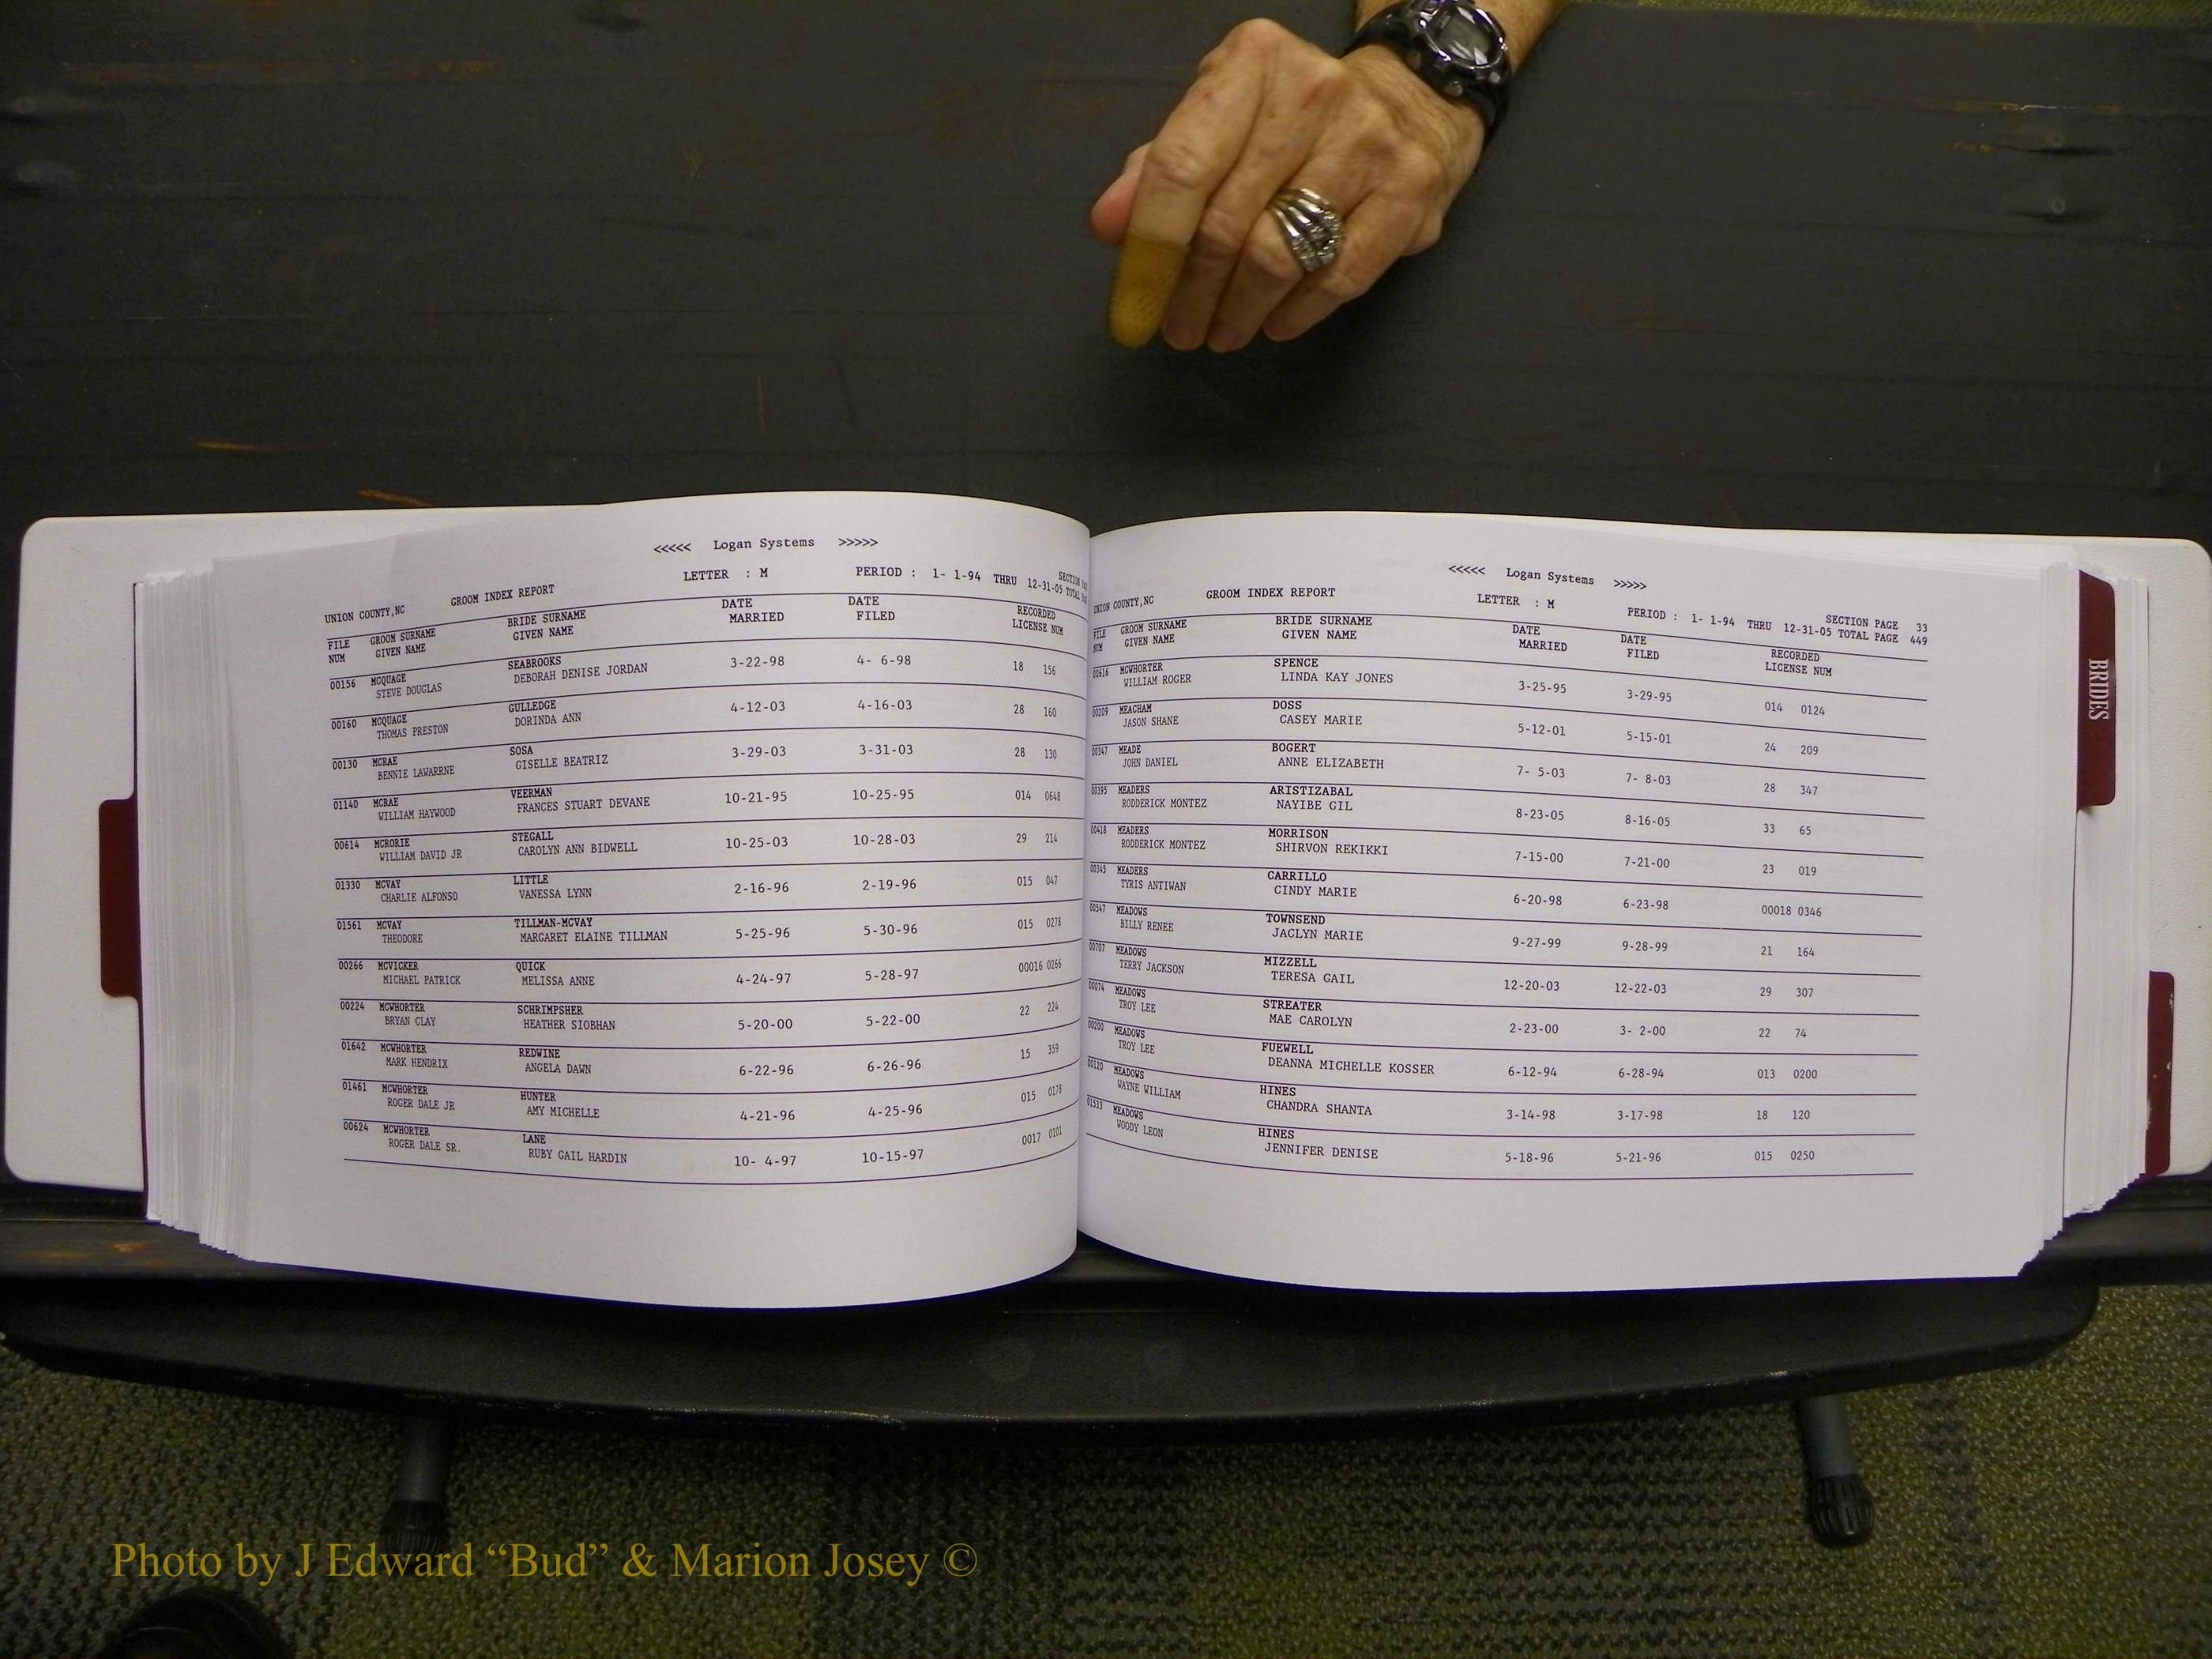 <<<<< Logan Systems >>>>>
LETTER : M PERIOD : 1- 1-94 THRU 12-31-05 TOTAL
UNION COUNTY,NC GROOM INDEX REPORT SECTION
FILE GROOM SURNAME BRIDE SURNAME DATE DATE RECORDED
NUM GIVEN NAME GIVEN NAME MARRIED FILED LICENSE NUM
00156 MCQUAGE SEABROOKS 3-22-98 4- 6-98 18 156
STEVE DOUGLAS DEBORAH DENISE JORDAN
00160 MCQUAGE GULLEDGE 4-12-03 4-16-03 28 160
THOMAS PRESTON DORINDA ANN
00130 MCRAE SOSA 3-29-03 3-31-03 28 130
BENNIE LAWARRNE GISELLE BEATRIZ
01140 MCRAE VEERMAN 10-21-95 10-25-95 014 0648
WILLIAM HAYWOOD FRANCES STUART DEVANE
00614 MCRORIE STEGALL 10-25-03 10-28-03 29 214
WILLIAM DAVID JR CAROLYN ANN BIDWELL
01330 MCVAY LITTLE 2-16-96 2-19-96 015 047
CHARLIE ALFONSO VANESSA LYNN
01561 MCVAY TILLMAN-MCVAY 5-25-96 5-30-96 015 0278
THEODORE MARGARET ELAINE TILLMAN
00266 MCVICKER QUICK 4-24-97 5-28-97 00016 0266
MICHAEL PATRICK MELISSA ANNE
00224 MCWHORTER SCHRIMPSHER 5-20-00 5-22-00 22 224
BRYAN CLAY HEATHER SIOBHAN
01642 MCWHORTER REDWINE 6-22-96 6-26-96 15 359
MARK HENDRIX ANGELA DAWN
01461 MCWHORTER HUNTER 4-21-96 4-25-96 015 0178
ROGER DALE JR AMY MICHELLE
00624 MCWHORTER LANE 10- 4-97 10-15-97 0017 0102
ROGER DALE SR. RUBY GAIL HARDIN
<<<<< Logan Systems >>>>>
LETTER : M PERIOD : 1- 1-94 THRU 12-31-05 TOTAL PAGE 449
UNION COUNTY,NC GROOM INDEX REPORT SECTION PAGE 33
FILE GROOM SURNAME BRIDE SURNAME DATE DATE RECORDED
NUM GIVEN NAME GIVEN NAME MARRIED FILED LICENSE NUM
00616 MCWHORTER SPENCE 3-25-95 3-29-95 014 0124
WILLIAM ROGER LINDA KAY JONES
00209 MEACHAM DOSS 5-12-01 5-15-01 24 209
JASON SHANE CASEY MARIE
00347 MEADE BOGERT 7- 5-03 7- 8-03 28 347
JOHN DANIEL ANNE ELIZABETH
00395 MEADERS ARISTIZABAL 8-23-05 8-16-05 33 65
RODDERICK MONTEZ NAYIBE GIL
00418 MEADERS MORRISON 7-15-00 7-21-00 23 019
RODDERICK MONTEZ SHIRVON REKIKKI
00345 MEADERS CARRILLO 6-20-98 6-23-98 00018 0346
TYRIS ANTIWAN CINDY MARIE
00547 MEADOWS TOWNSEND 9-27-99 9-28-99 21 164
BILLY RENEE JACLYN MARIE
00707 MEADOWS MIZZELL 12-20-03 12-22-03 29 307
TERRY JACKSON TERESA GAIL
00074 MEADOWS STREATER 2-23-00 3- 2-00 22 74
TROY LEE MAE CAROLYN
00200 MEADOWS FUEWELL 6-12-94 6-28-94 013 0200
TROY LEE DEANNA MICHELLE KOSSER
00120 MEADOWS HINES 3-14-98 3-17-98 18 120
WAYNE WILLIAM CHANDRA SHANTA
01533 MEADOWS HINES 5-18-96 5-21-96 015 0250
WOODY LEON JENNIFER DENISE
BRIDES
Photo by J Edward “Bud” & Marion Josey ©